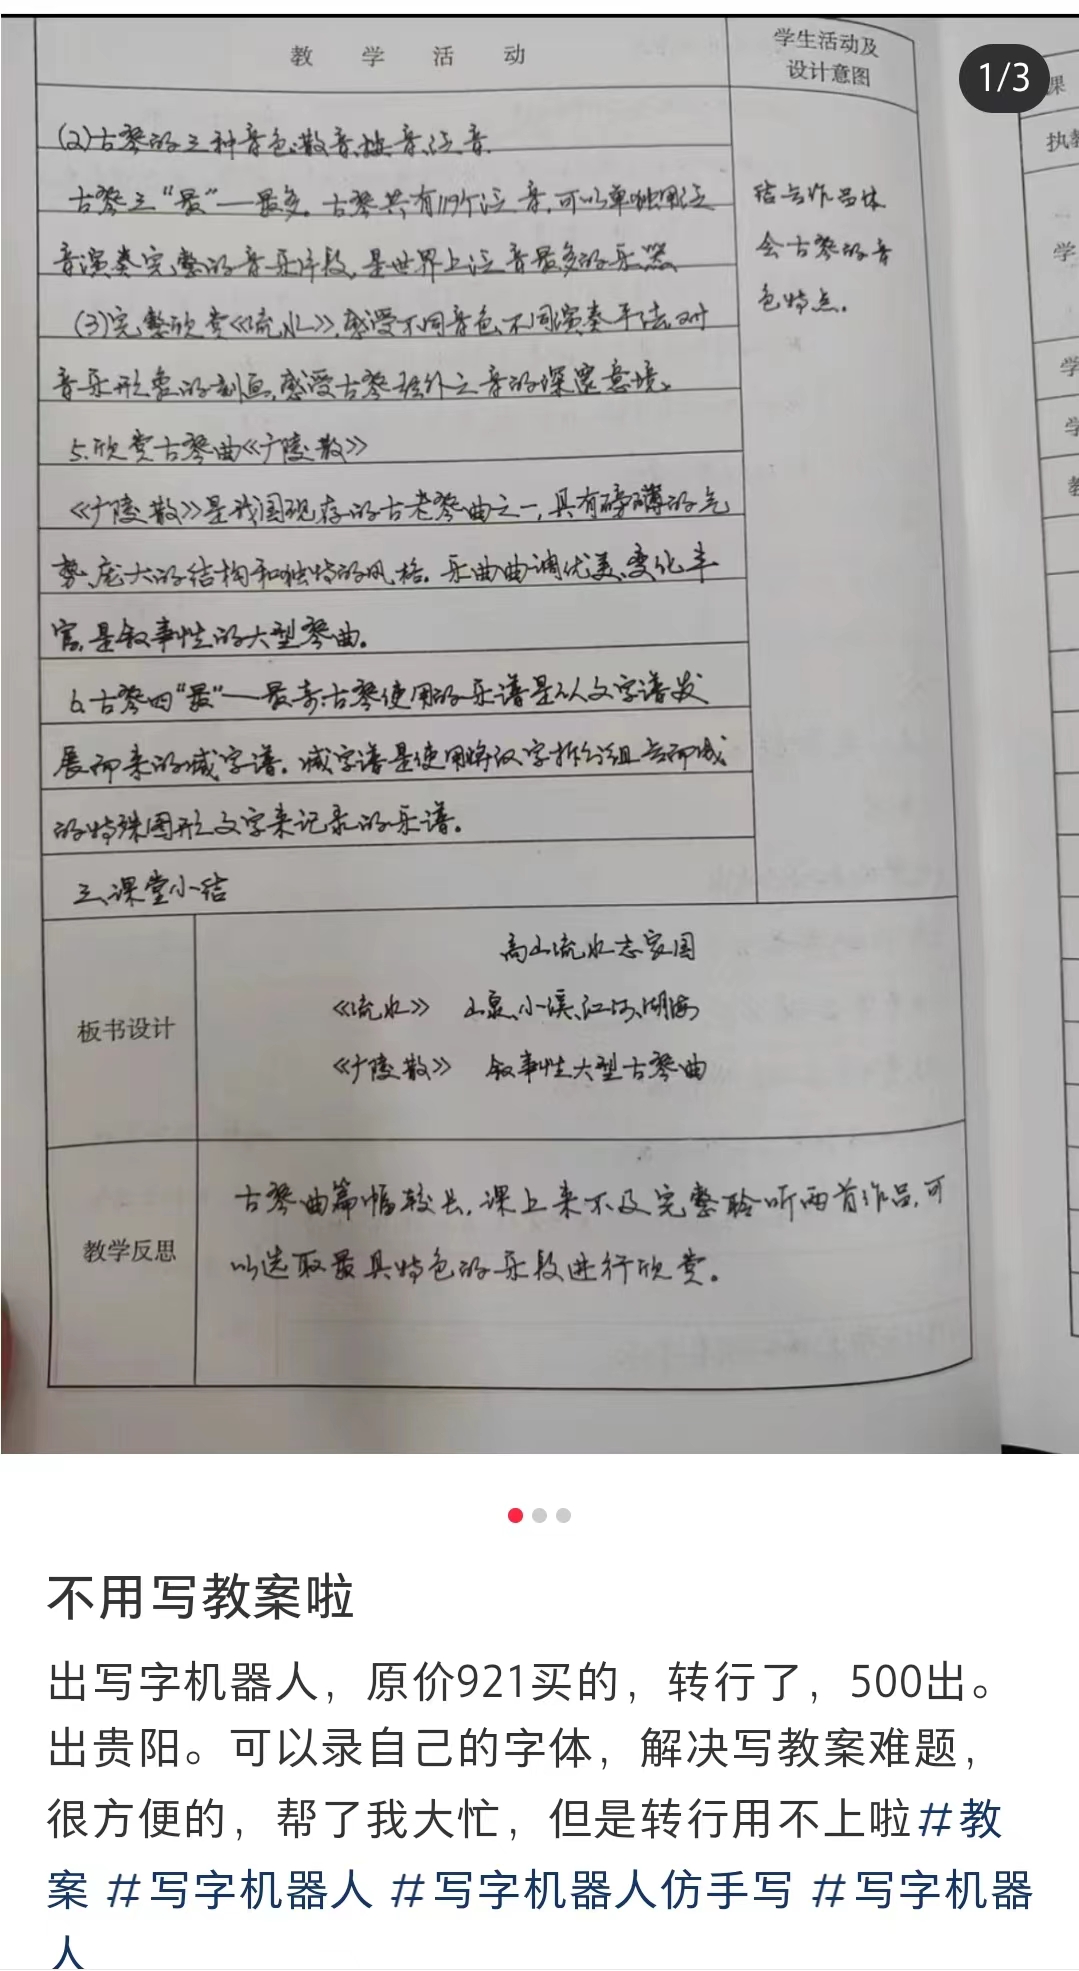 教 学 活 动
学生活动及
设计意图
1/3
课
执教
(2)古琴的三种音色:散音、按音、泛音.
古琴三“最”一最多。古琴共有119个泛音,可以单独用泛
音演奏完整的音乐片段,是世界上泛音最多的乐器
(3)完整欣赏《流水》,感受不同音色、不同演奏手法对
音乐形象的刻画,感受古琴弦外之音的深邃意境。
5.欣赏古琴曲《广陵散》
《广陵散》是我国现存的古老琴曲之一,具有磅礴的气
势、庞大的结构和独特的风格。乐曲曲调优美、变化丰
富,是叙事性的大型琴曲。
6.古琴四“最”一最奇:古琴使用的乐谱是以文字谱发
展而来的减字谱。减字谱是使用将汉字拆分组合而成
的特殊图形文字来记录的乐谱。
三、课堂小结
结合作品体
会古琴的音
色特点。
学
学
学
教
板书设计
高山流水志家国
《流水》 山泉、小溪、江河、湖海
《广陵散》 叙事性大型古琴曲
教学反思
古琴曲篇幅较长,课上来不及完整聆听两首作品,可
以选取最具特色的乐段进行欣赏。
不用写教案啦
出写字机器人，原价921买的，转行了，500出。
出贵阳。可以录自己的字体，解决写教案难题，
很方便的，帮了我大忙，但是转行用不上啦#教
案 #写字机器人 #写字机器人仿手写 #写字机器
人